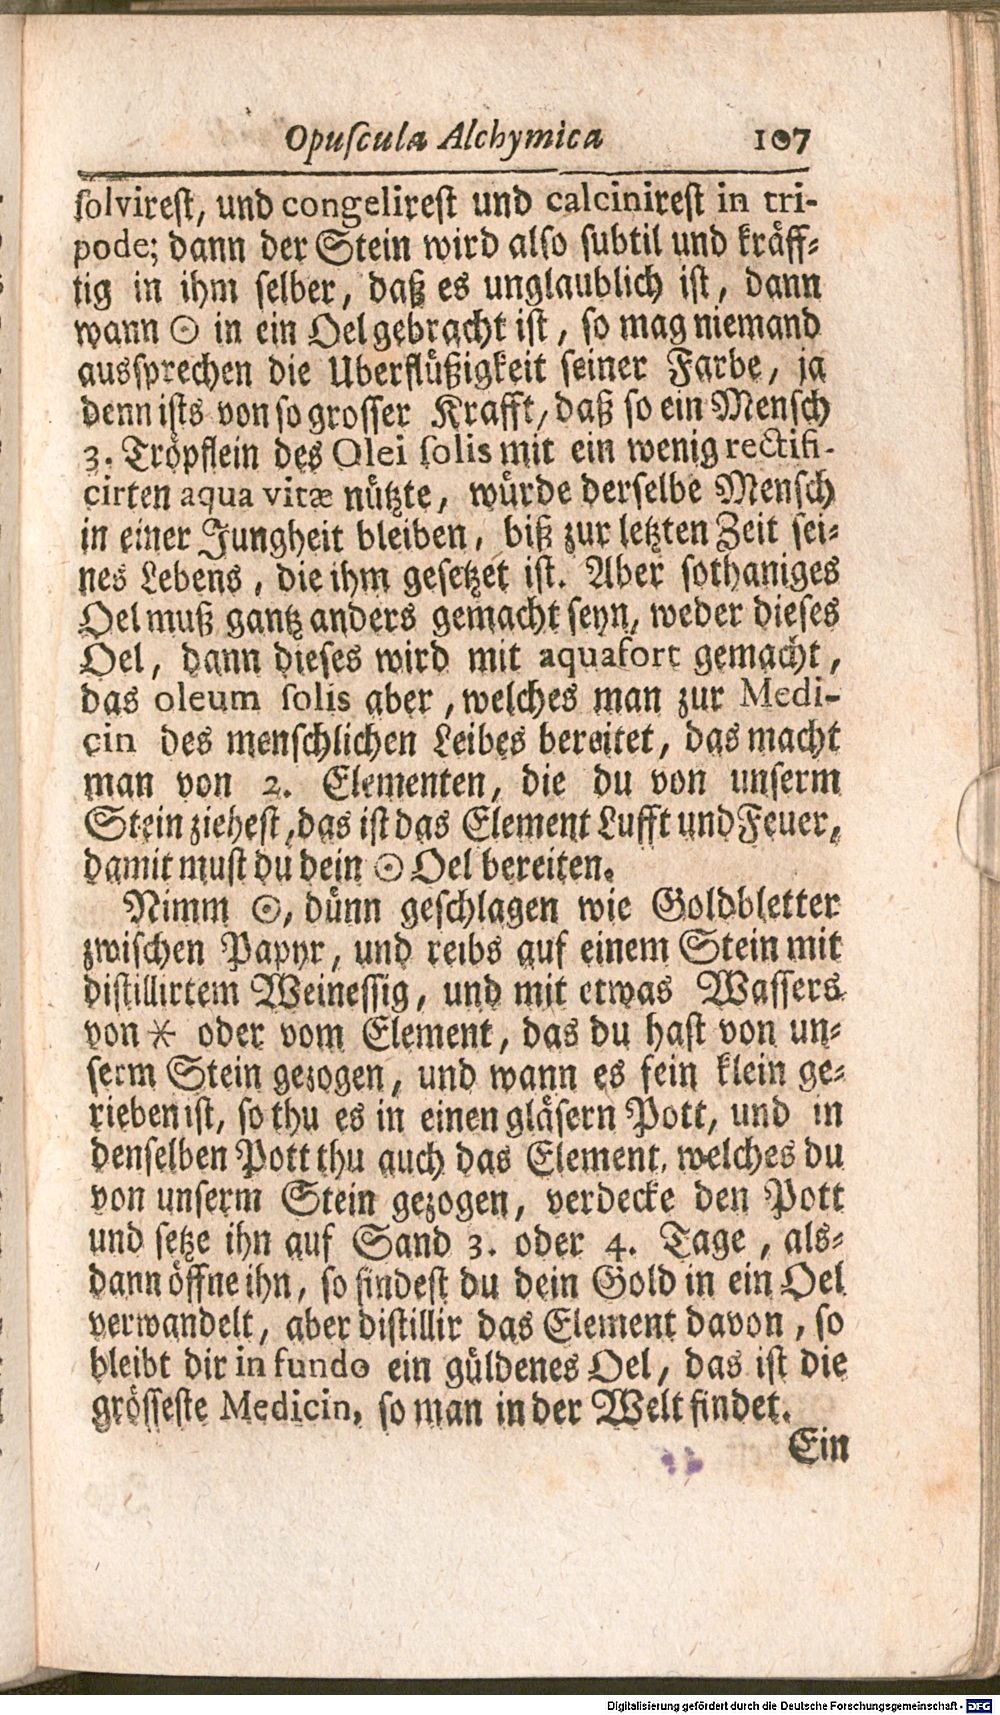 Opuscula Alchymica 107
solvirest, und congelirest und calcinirest in tri-
pode; dann der Stein wird also subtil und kräff-
tig in ihm selber, daß es unglaublich ist, dann
wann ☉ in ein Oel gebracht ist, so mag niemand
aussprechen die Uberflüßigkeit seiner Farbe, ja
denn ists von so grosser Krafft, daß so ein Mensch
3. Tröpflein des Olei solis mit ein wenig rectifi-
cirten aqua vitæ nützte, würde derselbe Mensch
in einer Jungheit bleiben, biß zur letzten Zeit sei-
nes Lebens, die ihm gesetzet ist. Aber sothaniges
Oel muß gantz anders gemacht seyn, weder dieses
Oel, dann dieses wird mit aquafort gemacht,
das oleum solis aber, welches man zur Medi-
cin des menschlichen Leibes bereitet, das macht
man von 2. Elementen, die du von unserm
Stein ziehest, das ist das Element Lufft und Feuer,
damit must du dein ☉ Oel bereiten.
Nimm ☉, dünn geschlagen wie Goldbletter
zwischen Papyr, und reibs auf einem Stein mit
distillirtem Weinessig, und mit etwas Wassers
von ⚹ oder vom Element, das du hast von un-
serm Stein gezogen, und wann es fein klein ge-
rieben ist, so thu es in einen gläsern Pott, und in
denselben Pott thu auch das Element, welches du
von unserm Stein gezogen, verdecke den Pott
und setze ihn auf Sand 3. oder 4. Tage, als-
dann öffne ihn, so findest du dein Gold in ein Oel
verwandelt, aber distillir das Element davon, so
bleibt dir in fundo ein güldenes Oel, das ist die
grösseste Medicin, so man in der Welt findet.
Ein
Digitalisierung gefördert durch die Deutsche Forschungsgemeinschaft - DFG